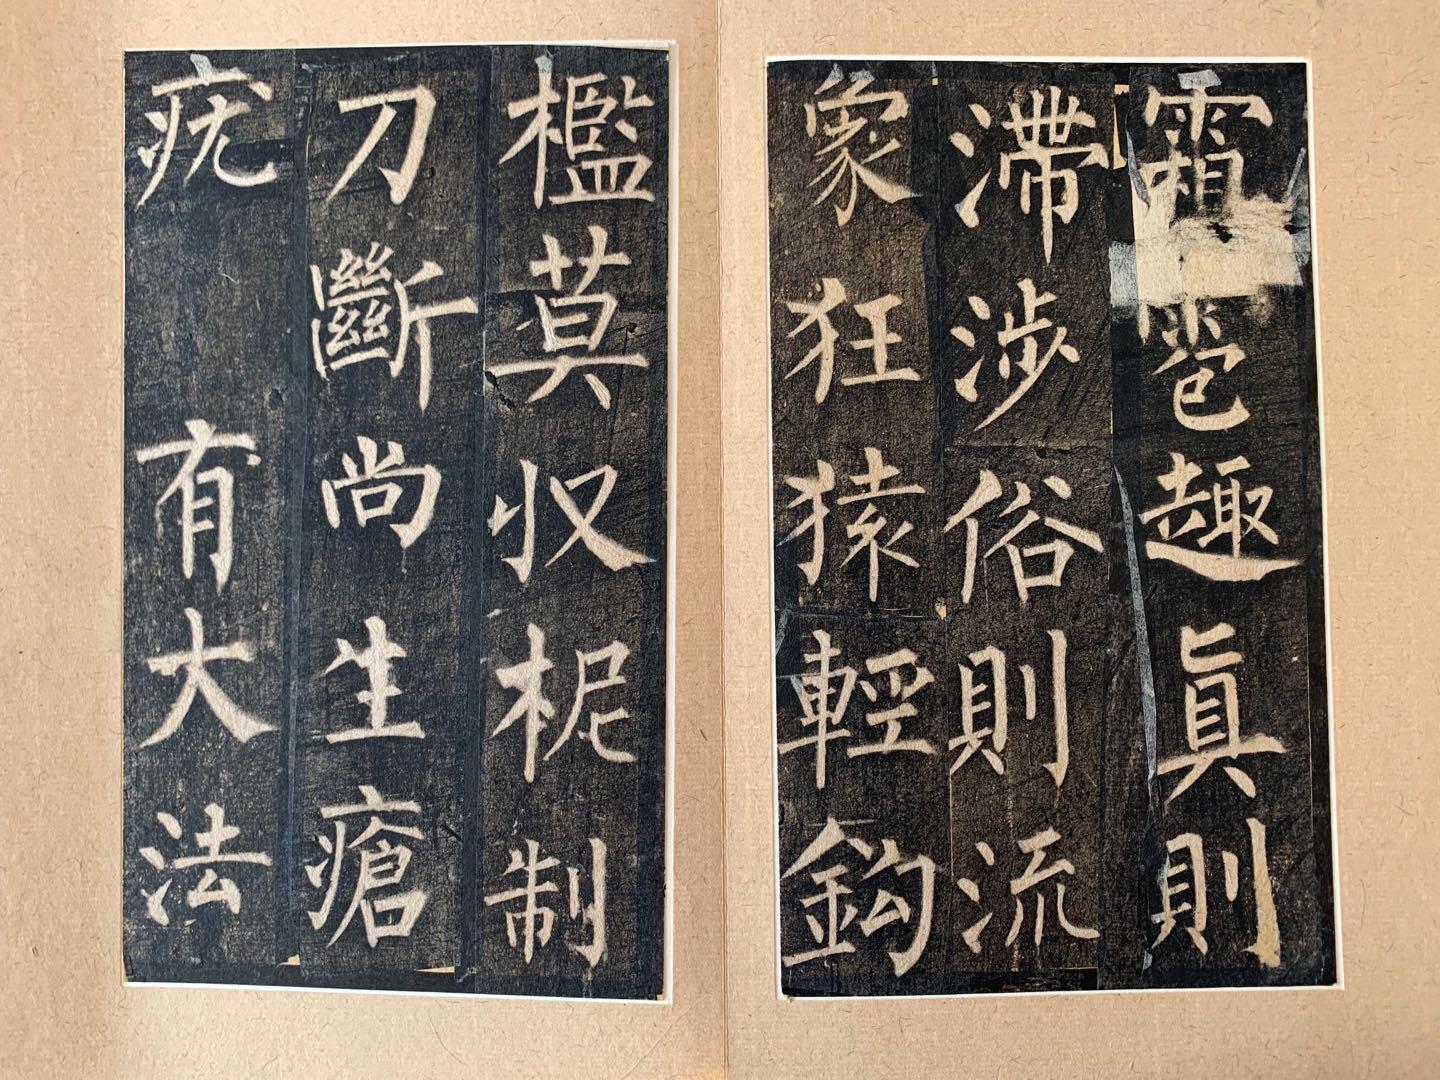 霜趣眞則
滯涉俗則流
象狂猿輕鈎
檻莫収柅制
刀斷尚生瘡
疣 有大法